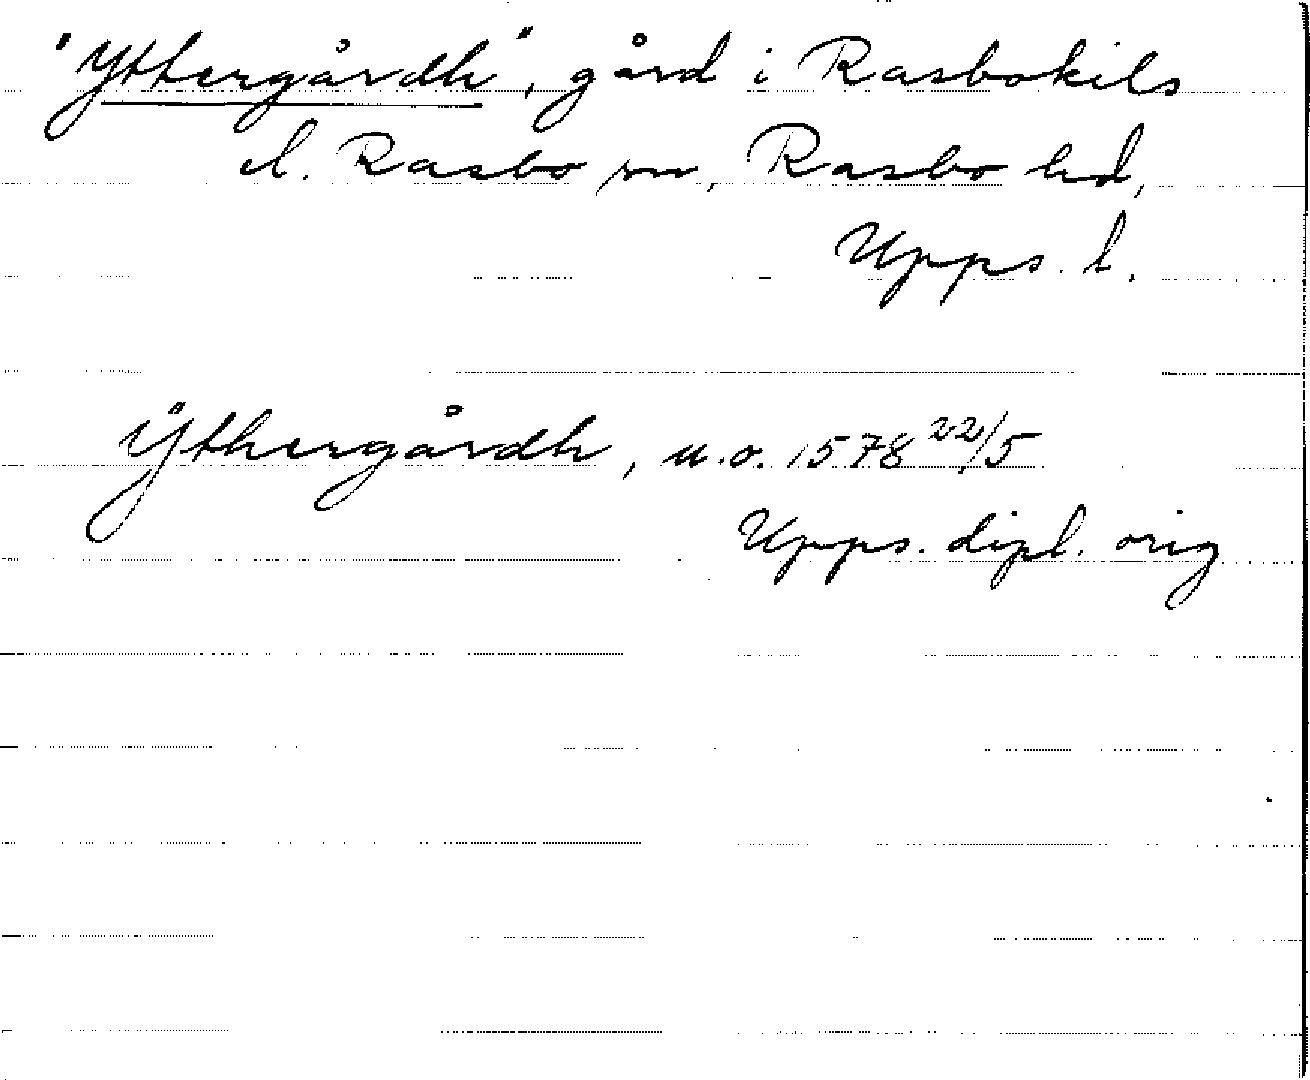 "Yttergårdh", gård i Rasbokils
el. Rasbo sn, Rasbo hd,
Upps. l.
Ÿthergårdh, u.o. 1578 22/5
Upps. dipl. orig